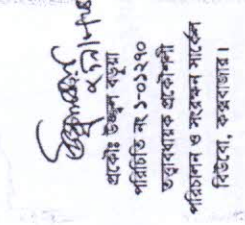 প্রকৌঃ উজ্জ্বল বড়ুয়া
পরিচিতি নং ১-০১২৭০
তত্ত্বাবধায়ক প্রকৌশলী
পরিচালন ও সংরক্ষন সার্কেল
বিউবো, কক্সবাজার।